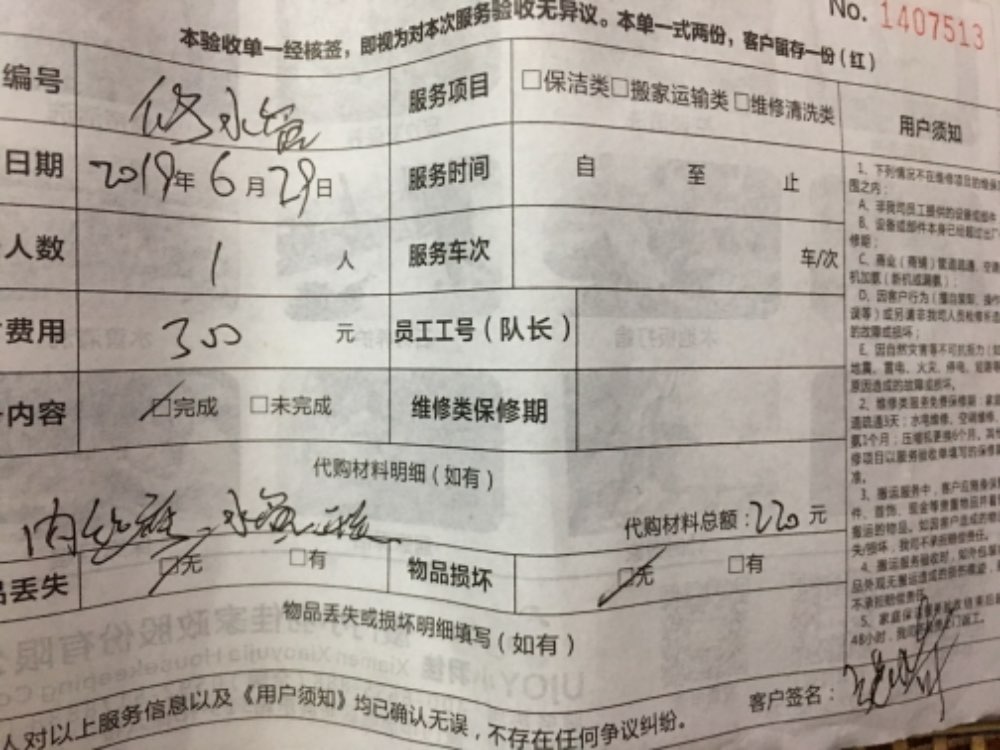 No. 1407513
本验收单一经核签，即视为对本次服务验收无异议。本单一式两份，客户留存一份（红）
编号 修水管 服务项目 □保洁类□搬家运输类 □维修清洗类
用户须知
日期 2019年6月29日 服务时间 自 至 止
人数 1 人 服务车次 车/次
费用 300 元 员工工号（队长）
内容 □完成 □未完成 维修类保修期
代购材料明细（如有）
代购材料总额：220元
品丢失 □无 □有 物品损坏 □无 □有
物品丢失或损坏明细填写（如有）
客户签名：
人对以上服务信息以及《用户须知》均已确认无误，不存在任何争议纠纷。
1、下列情况不在维修项目的维保
围之内：
A、非我司员工提供的设备或部件
B、设备或部件本身已经超过出厂
修期；
C、商业（商铺）管道疏通、空调
机加氨（新机或漏氨）；
D、因客户行为（擅自装卸、操作
误等）或另请非我司人员检修所造
的故障或损坏；
E、因自然灾害等不可抗力（如
地震、雷电、火灾、停电、短路等
原因造成的故障或损坏。
2、维修类服务免费保修期：家庭
道疏通3天；水电维修、空调维修、
氨1个月；压缩机更换6个月。其
修项目以服务验收单填写的保修
准。
3、搬运服务中，客户应随身保
件、首饰、现金等贵重物品并
搬运的物品。如因客户造成的物
失/损坏，我司不承担赔偿责任。
4、搬运服务验收时，如外包装
品外观无搬运造成的损伤痕迹，
不承担赔偿责任
5、家庭保洁服务验收结束后
48小时，我司